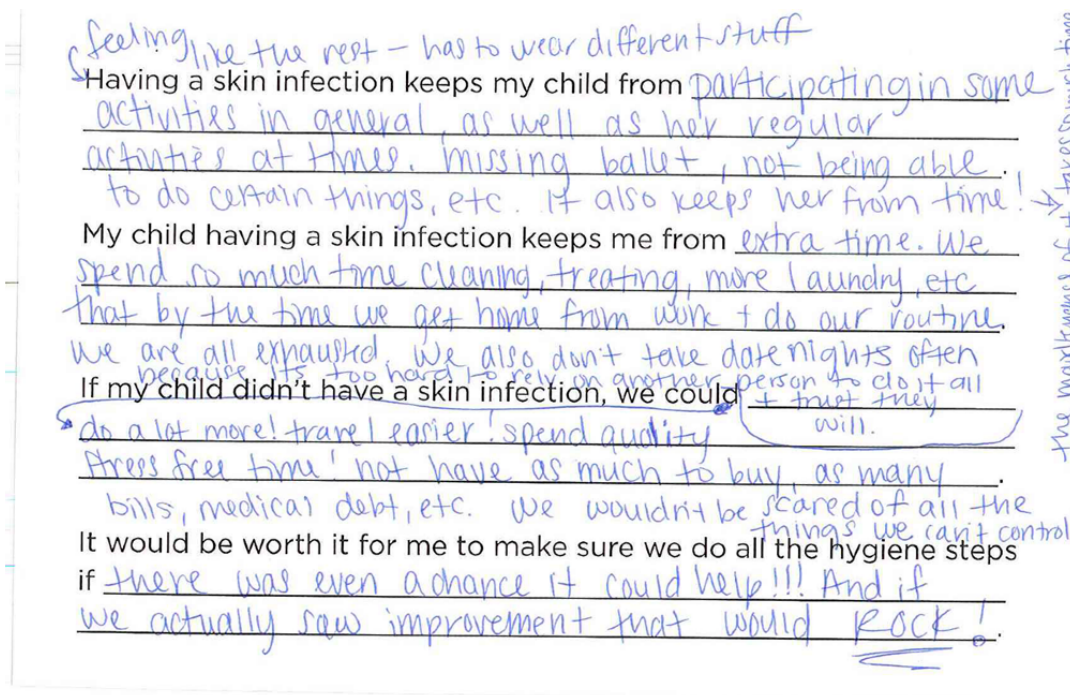 feeling like the rest - has to wear different stuff
Having a skin infection keeps my child from participating in some
activities in general, as well as her regular
activities at times. missing ballet, not being able.
to do certain things, etc. It also keeps her from time! →
My child having a skin infection keeps me from extra time. We
spend so much time cleaning, treating, more laundry, etc
that by the time we get home from work + do our routine.
we are all exhausted. We also don't take date nights often
because its too hard to rely on another person to do it all
+ trust they
will.
If my child didn't have a skin infection, we could
do a lot more! travel easier! spend quality
stress free time! not have as much to buy, as many.
bills, medical debt, etc. We wouldn't be scared of all the
things we can't control
It would be worth it for me to make sure we do all the hygiene steps
if there was even a chance it could help!!! And if
we actually saw improvement that would ROCK!.
the maintenance of it takes so much time